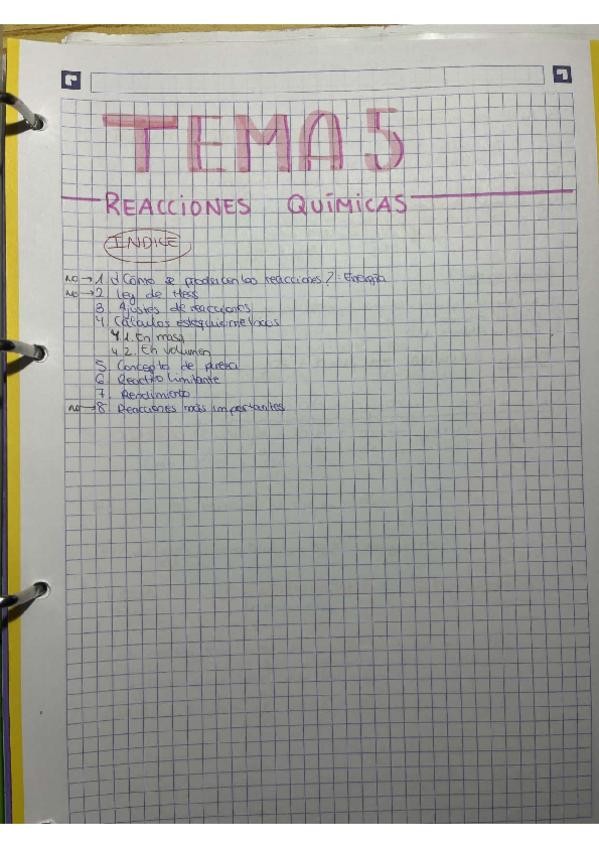 TEMA 5
REACCIONES QUÍMICAS
INDICE
no → 1. ¿Cómo se producen las reacciones?: Energía
no → 2. Ley de Hess
3. Ajustes de reacciones
4. Cálculos estequiométricos
4.1. En masa
4.2. En volumen
5. Concepto de pureza
6. Reactivo limitante
7. Rendimiento
no → 8. Reacciones más importantes